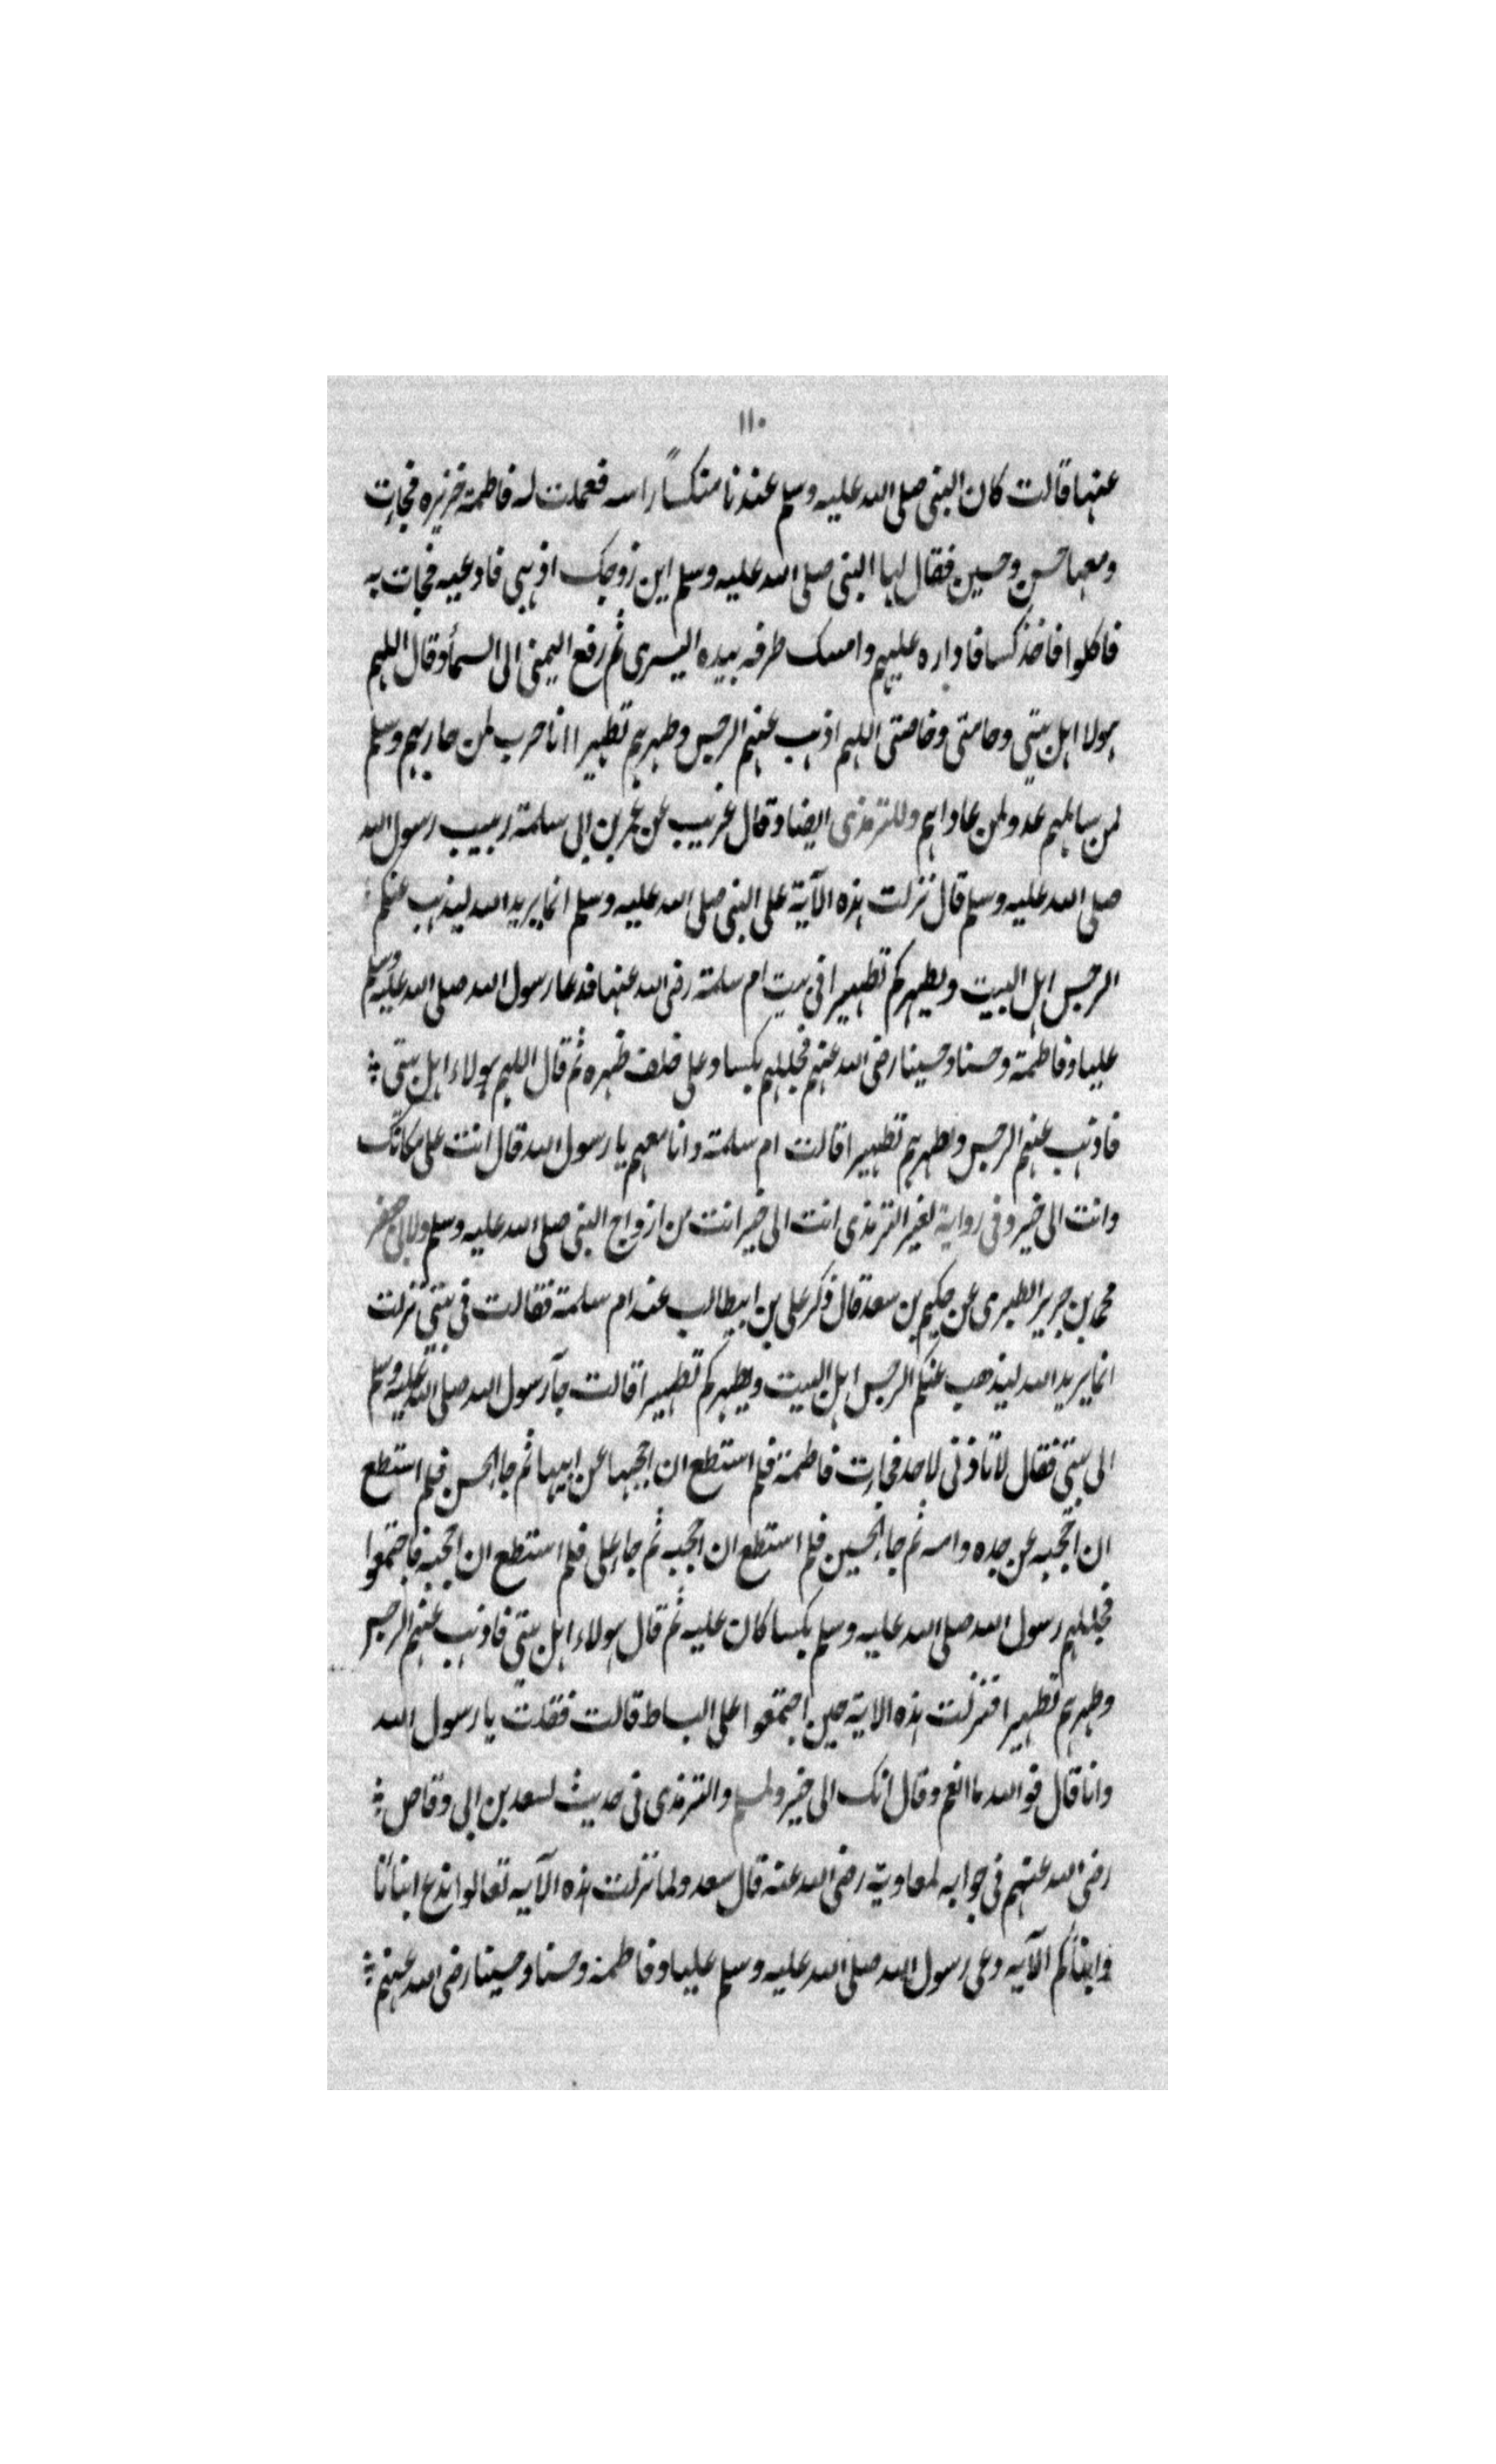 ١١٠
عنها قالت كان النبي صلى الله عليه وسلم عندنا منكسًا راسه فعملت له فاطمة خزيره فجات
ومعها حسن وحسين فقال لها النبي صلى الله عليه وسلم اين زوجك اذهبي فادعيه فجات به
فاكلوا فاخذ كسا فاداره عليهم وامسك طرفه بيده اليسرى ثم رفع اليمنى الى السمأ وقال اللهم
هولا اهل بيتي وحامتي وخاصتي اللهم اذهب عنهم الرجس وطهرهم تطهيرا انا حرب لمن حاربهم وسلم
لمن سالمهم عدو لمن عاداهم وللترمذى ايضا وقال غريب عن عمر بن ابى سلمة ربيب رسول الله
صلى الله عليه وسلم قال نزلت هذه الآية على النبي صلى الله عليه وسلم انما يريد الله ليذهب عنكم
الرجس اهل البيت ويطهركم تطهيرا في بيت ام سلمة رضى الله عنها فدعا رسول الله صلى الله عليه وسلم
عليا وفاطمة وحسنا وحسينا رضى الله عنهم فجللهم بكسا وعلى خلف ظهره ثم قال اللهم هولاء اهل بيتي
فاذهب عنهم الرجس وطهرهم تطهيرا قالت ام سلمة وانا معهم يا رسول الله قال انت على مكانك
وانت الى خير وفى رواية لغير الترمذى انت الى خير انت من ازواج النبي صلى الله عليه وسلم ولابى جعفر
محمد بن جرير الطبرى عن حكيم بن سعد قال ذكر على بن ابيطالب عند ام سلمة فقالت فى بيتي نزلت
انما يريد الله ليذهب عنكم الرجس اهل البيت ويطهركم تطهيرا قالت جآ رسول الله صلى الله عليه وسلم
الى بيتي فقال لا تاذنى لاحد فجارت فاطمة فلم استطع ان احجبها عن ابيها ثم جا الحسن فلم استطع
ان احجبه عن جده وامه ثم جا الحسين فلم استطع ان احجبه ثم جا على فلم استطع ان احجبه فاجتمعوا
فجللهم رسول الله صلى الله عليه وسلم بكسا كان عليه ثم قال هولاء اهل بيتي فاذهب عنهم الرجس
وطهرهم تطهيرا فنزلت هذه الاية حين اجتمعوا على البساط قالت فقلت يا رسول الله
وانا قال فو الله ما انعم وقال انك الى خير ولمسلم والترمذى فى حديث لسعد بن ابى وقاص
رضى الله عنهم فى جوابه لمعاوية رضى الله عنه قال سعد ولما نزلت هذه الآيه تعالوا ندع ابنائنا
وابنائكم الآيه دعى رسول الله صلى الله عليه وسلم عليا وفاطمة وحسنا وحسينا رضى الله عنهم